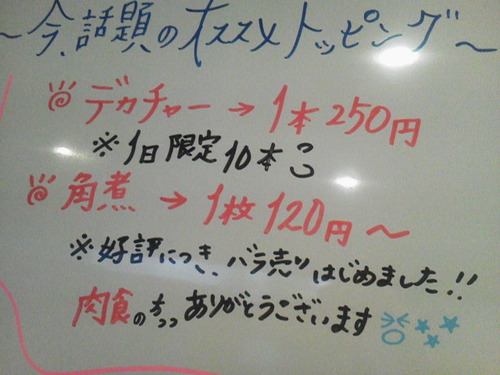 ～今、話題のオススメトッピング～
デカチャー→1本250円
※1日限定10本
角煮→1枚120円～
※好評につき、バラ売りはじめました!!
肉食の方々ありがとうございます